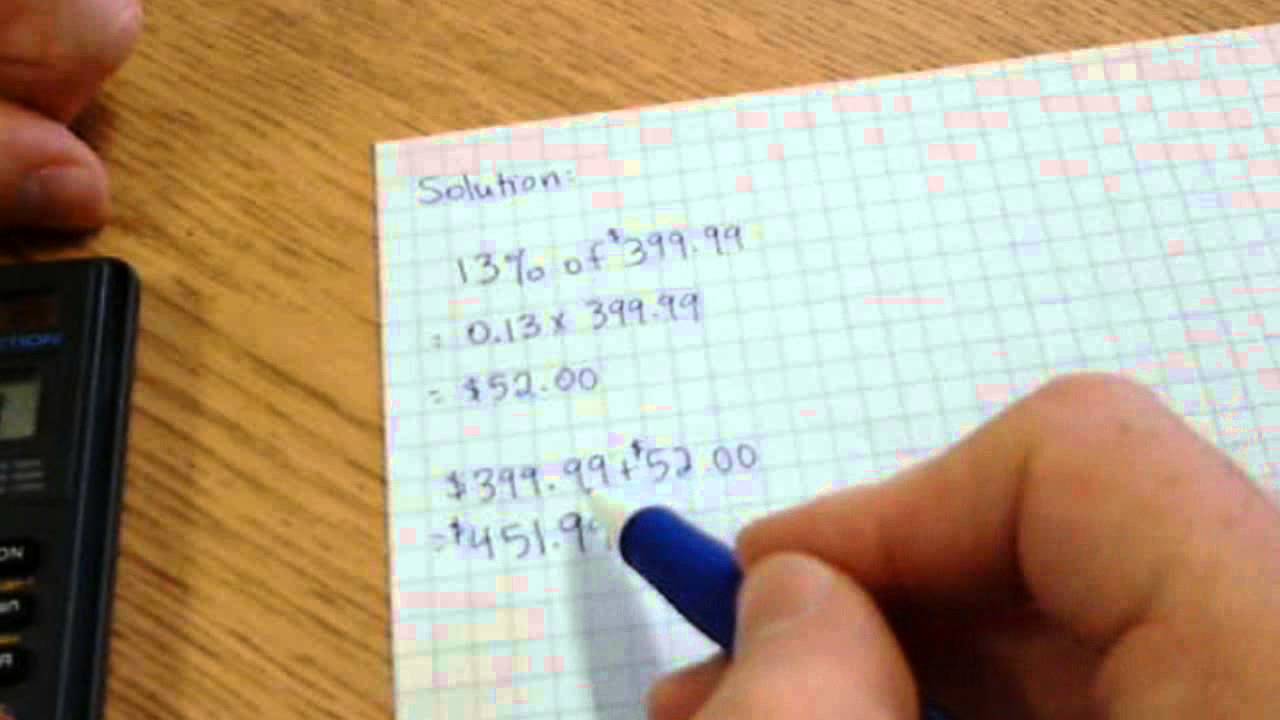 Solution:
13% of $399.99
= 0.13 x 399.99
= $52.00
$399.99 + $52.00
= $451.99
CTION
ON